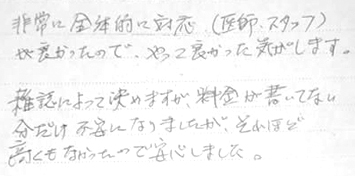 非常に全体的に対応（医師、スタッフ）
が良かったので、やって良かった気がします。
雑誌によって決めますが、料金が書いてない
分だけ不安になりましたが、それほど
高くもなかったので安心しました。